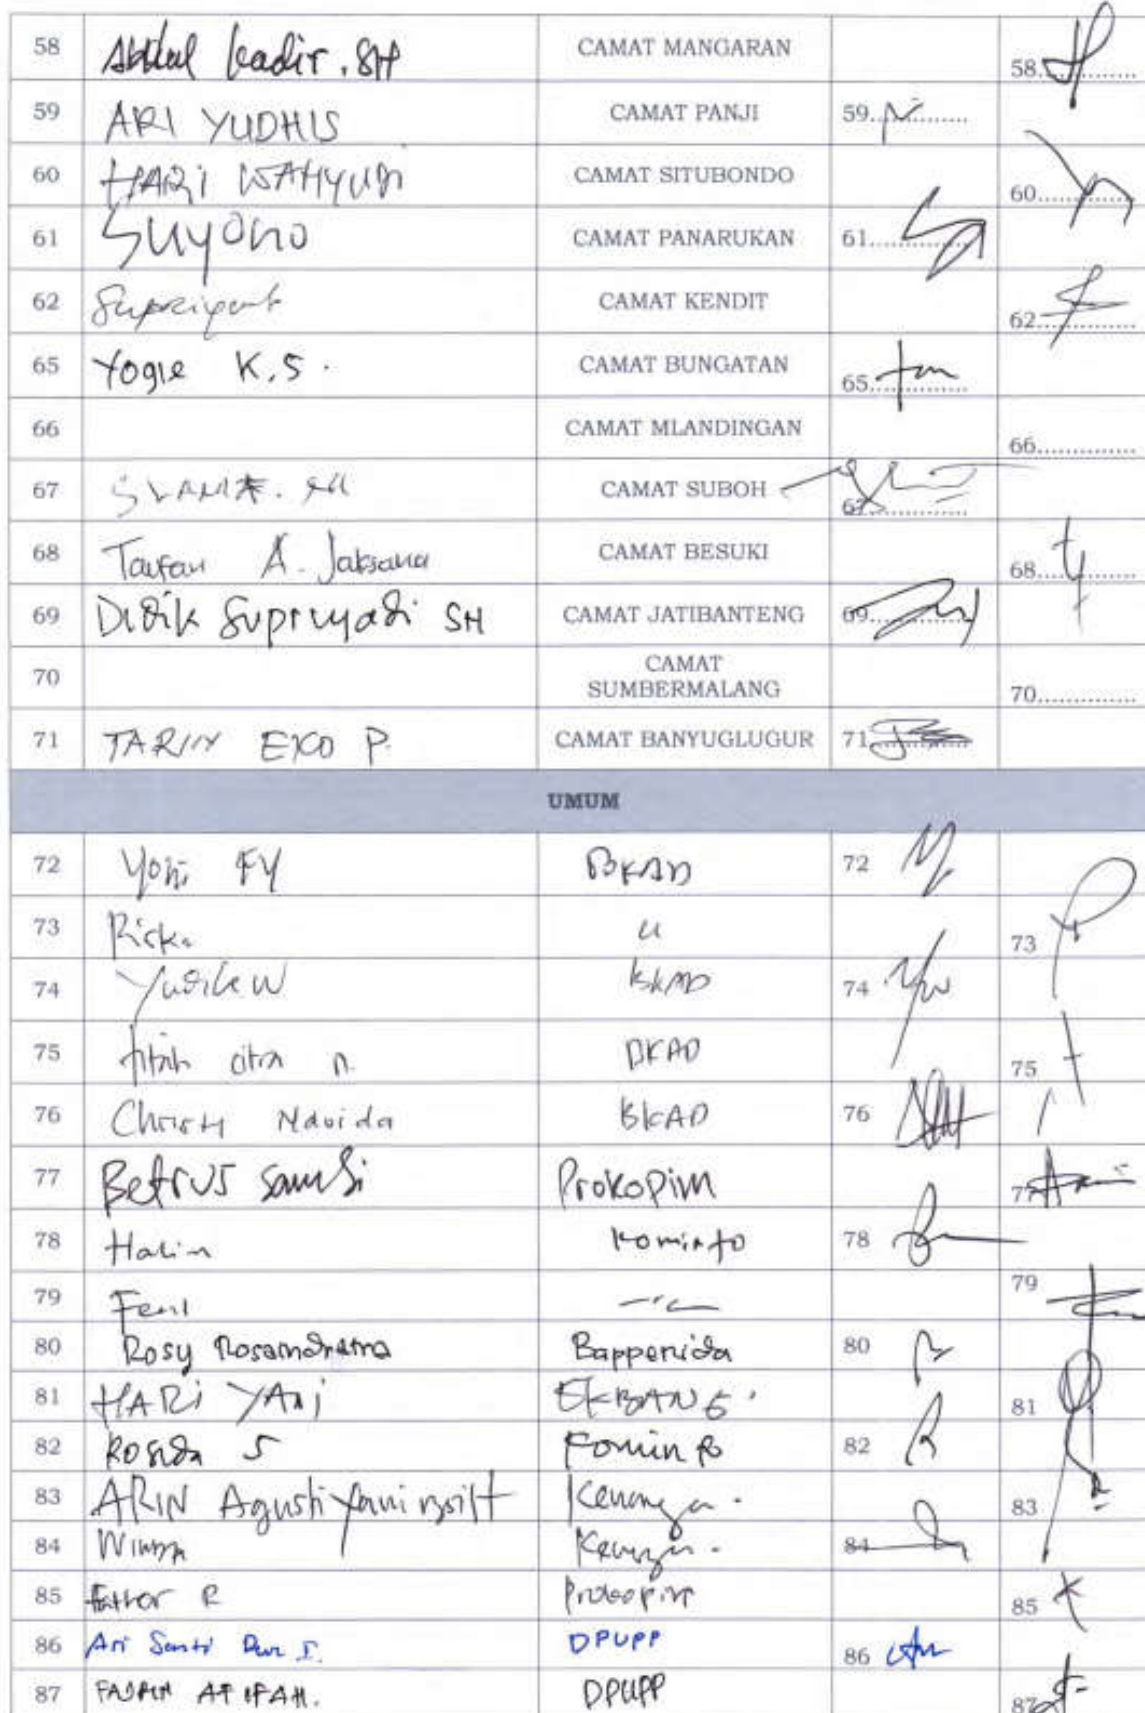 58 Abdul Kadir, SH CAMAT MANGARAN 58..........
59 ARI YUDHIS CAMAT PANJI 59..........
60 HARI WAHYUDI CAMAT SITUBONDO 60..........
61 SUYONO CAMAT PANARUKAN 61..........
62 CAMAT KENDIT 62..........
65 Yogie K.S. CAMAT BUNGATAN 65..........
66 CAMAT MLANDINGAN 66..........
67 CAMAT SUBOH 67..........
68 Taufan A. Jaksana CAMAT BESUKI 68..........
69 Didik Supriyadi SH CAMAT JATIBANTENG 69..........
70 CAMAT SUMBERMALANG 70..........
71 EKO P. CAMAT BANYUGLUGUR 71..........
UMUM
72 FY BKAD 72
73 Riska 73
74 BKAD 74
75 citra n. BKAD 75
76 Christy Navida BKAD 76
77 Betrus Prokopim 77
78 Halim Kominfo 78
79 79
80 Rosy Bapperida 80
81 HARI YANI EKBANG 81
82 Rosida S Kominfo 82
83 ARIN 83
84 84
85 R Prokopim 85
86 Ari Santi DPUPP 86
87 DPUPP 87